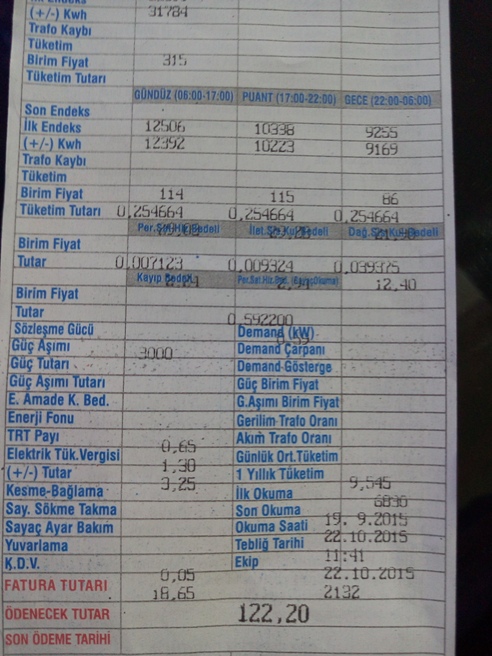 (+/-) Kwh 31784
Trafo Kaybı
Tüketim
Birim Fiyat 315
Tüketim Tutarı
GÜNDÜZ (06:00-17:00) PUANT (17:00-22:00) GECE (22:00-06:00)
Son Endeks
İlk Endeks 12506 10338 9255
(+/-) Kwh 12392 10223 9169
Trafo Kaybı
Tüketim
Birim Fiyat 114 115 86
Tüketim Tutarı 0,254664 0,254664 0,254664
Per.Sat.Hiz.Bedeli İlet.Sis.Kul.Bedeli Dağ.Sis.Kul.Bedeli
Birim Fiyat
Tutar 0,007123 0,009324 0,039375
Kayıp Bedeli 12,40
Birim Fiyat
Tutar 0,592200
Sözleşme Gücü Demand (kW)
Güç Aşımı 3000 Demand Çarpanı
Güç Tutarı Demand Gösterge
Güç Aşımı Tutarı Güç Birim Fiyat
E. Amade K. Bed. G.Aşımı Birim Fiyat
Enerji Fonu Gerilim Trafo Oranı
TRT Payı 0,65 Akım Trafo Oranı
Elektrik Tük.Vergisi 1,30 Günlük Ort.Tüketim
(+/-) Tutar 3,25 1 Yıllık Tüketim 9,545
Kesme-Bağlama İlk Okuma 6830
Say. Sökme Takma Son Okuma 19. 9.2015
Sayaç Ayar Bakım Okuma Saati 22.10.2015
Yuvarlama Tebliğ Tarihi 11:41
K.D.V. 0,05 Ekip 22.10.2015
FATURA TUTARI 18,65 2132
ÖDENECEK TUTAR 122,20
SON ÖDEME TARİHİ